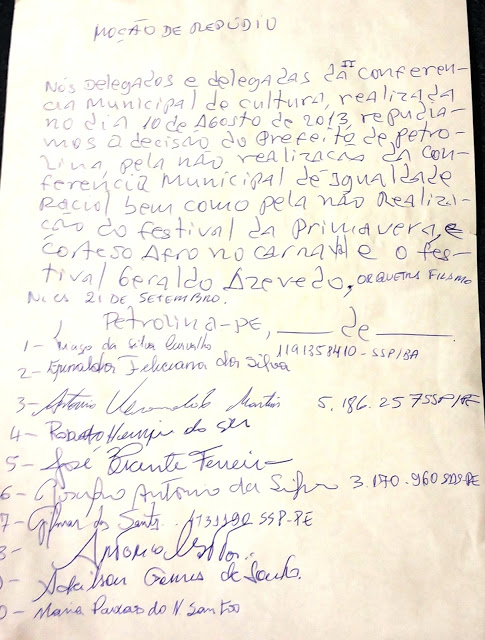 MOÇÃO DE REPÚDIO
Nós Delegados e delegadas da II conferen-
cia Municipal de cultura, realizada
no dia 10 de Agosto de 2013, repudia-
mos a decisão do Prefeito de petro-
lina, pela não realizacão da con-
ferencia Municipal de Igualdade
Racial bem como pela não Realiza-
cão do festival da Primavera, e
corteso Afro no carnaval e o fes-
tival Geraldo Azevedo, ORQUETRA FILARMO
NICA 21 DE SETEMBRO.
Petrolina-PE, ____ de ____.
1- da Silva Carvalho 1191358410-SSP/BA
2- Feliciana dos Silva
3- Antonio Martins 5.186.257 SSP/PE
4- Roberto Henrique da
5- José Vicente Ferreira
6- Antonio da Silva 3.170.960 SDS-PE
7- Gilmar dos Santos 4731190 SSP-PE
8- Antonio
- Adailson Gomes de Souza.
0- Maria do N Santos